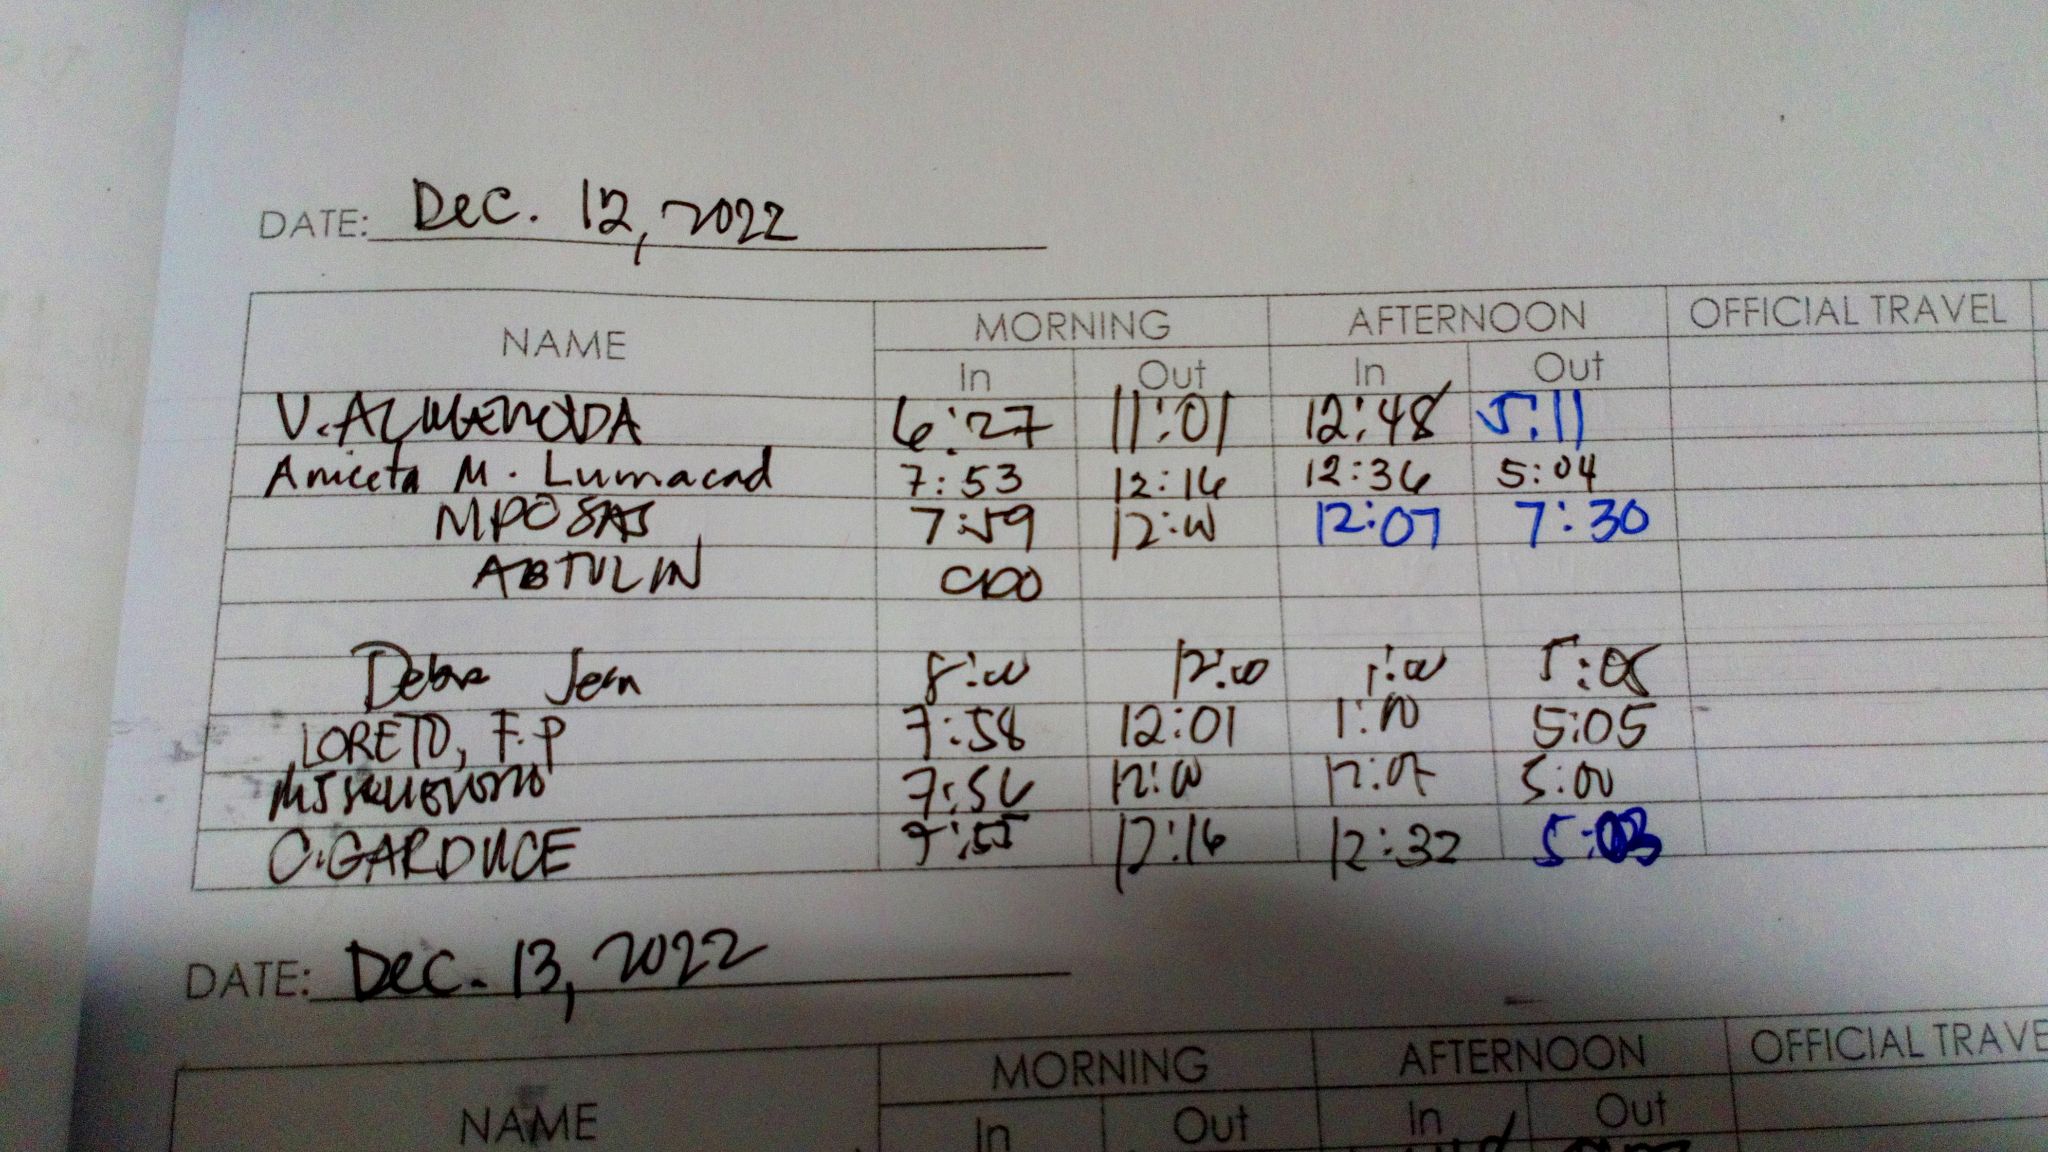 DATE: Dec. 12, 2022
NAME MORNING AFTERNOON OFFICIAL TRAVEL
In Out In Out
V. ALMENODA 6:27 11:01 12:48 5:11
Aniceta M. Lumacad 7:53 12:16 12:36 5:04
MPOSAS 7:59 12:00 12:07 7:30
ABTULIN CDO
Debra Jean 8:00 12:00 1:00 5:05
LORETO, F.P 7:58 12:01 1:00 5:05
7:56 12:00 12:07 5:00
C. GARDUCE 7:55 12:16 12:32 5:03
DATE: Dec. 13, 2022
MORNING AFTERNOON OFFICIAL TRAVE
NAME In Out In Out